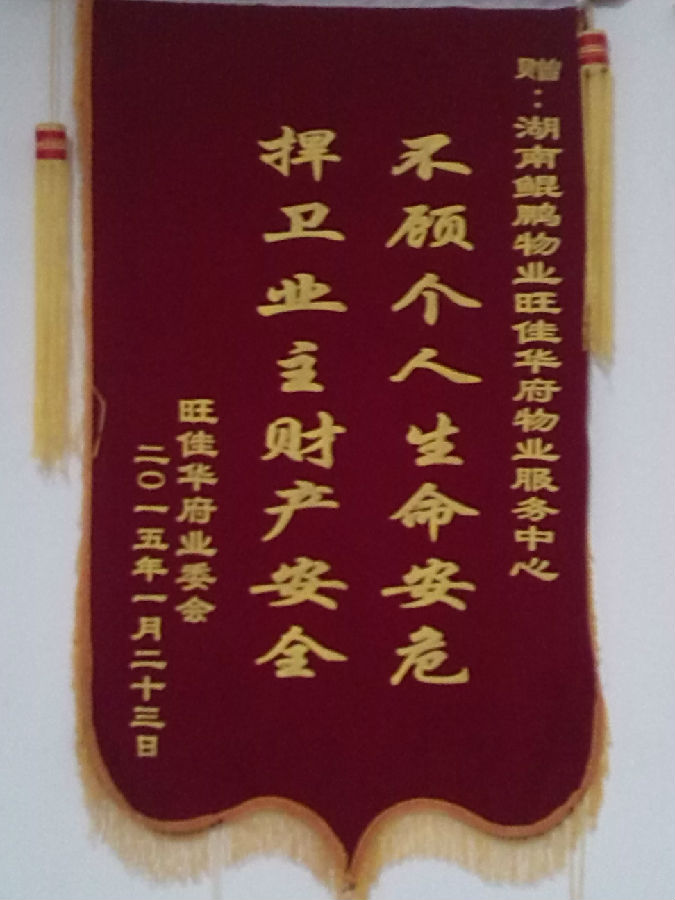 赠：湖南鲲鹏物业旺佳华府物业服务中心
不顾个人生命安危
捍卫业主财产安全
旺佳华府业委会
二〇一五年一月二十三日